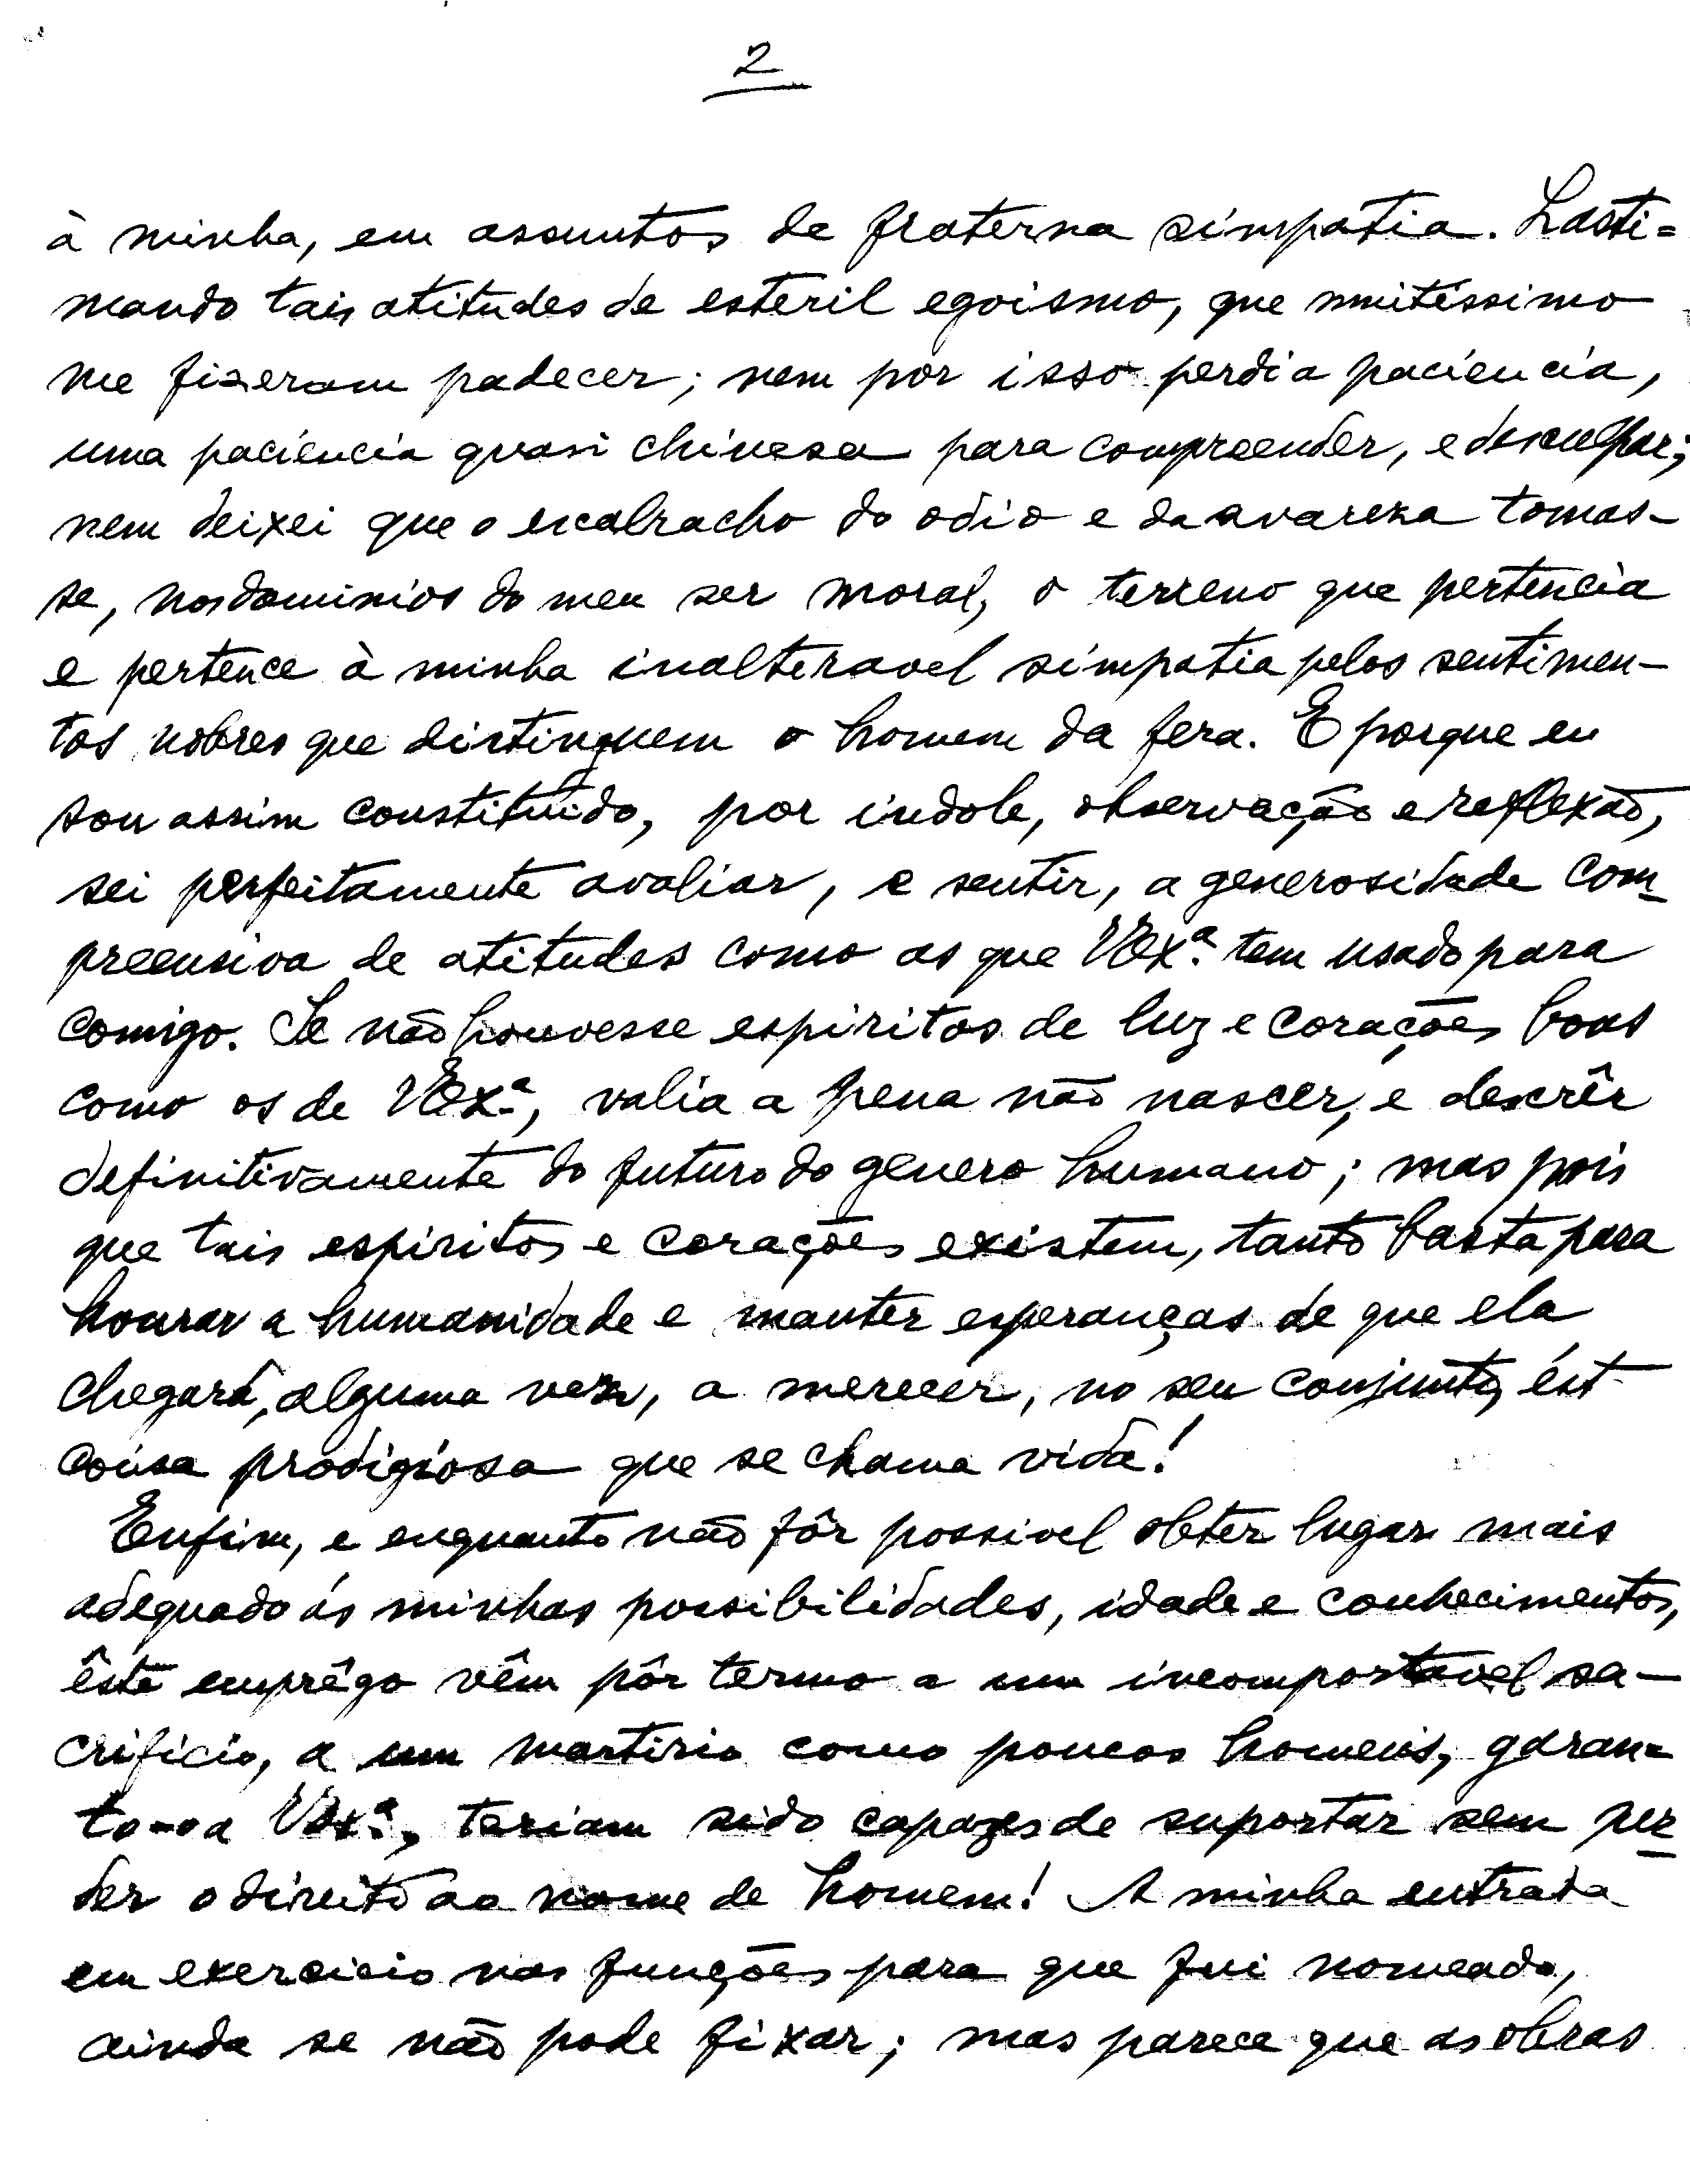 2
à minha, em assuntos de fraterna simpatia. Lasti=
mando tais atitudes de esteril egoismo, que muitissimo
me fizeram padecer; nem por isso perdi a paciencia,
uma paciencia quasi chinesa para compreender, e desculpar;
nem deixei que o escalracho do odio e da avareza tomas-
se, nos dominios do meu ser moral, o terreno que pertencia
e pertence à minha inalteravel simpatia pelos sentimen-
tos nobres que distinguem o homem da fera. E porque eu
sou assim constituido, por indole, observação e reflexão,
sei perfeitamente avaliar, e sentir, a generosidade com-
preensiva de atitudes como as que VExª. tem usado para
comigo. Se não houvesse espiritos de luz e corações bons
como os de VExª., valia a pena não nascer, e descrêr
definitivamente do futuro do genero humano; mas pois
que tais espiritos e corações existem, tanto basta para
honrar a humanidade e manter esperanças de que ela
chegará, alguma vez, a merecer, no seu conjunto, ést
coisa prodigiosa que se chama vida!
Enfim, e enquanto não fôr possivel obter lugar mais
adequado ás minhas possibilidades, idade e conhecimentos,
êste emprêgo vêm pôr termo a um incomportavel sa-
crificio, a um martirio como poucos homens, garan=
to-o a VExª., teriam sido capazes de suportar sem per-
der o direito ao nome de homem! A minha entrada
em exercicio nas funções para que fui nomeado,
ainda se não pode fixar; mas parece que as obras